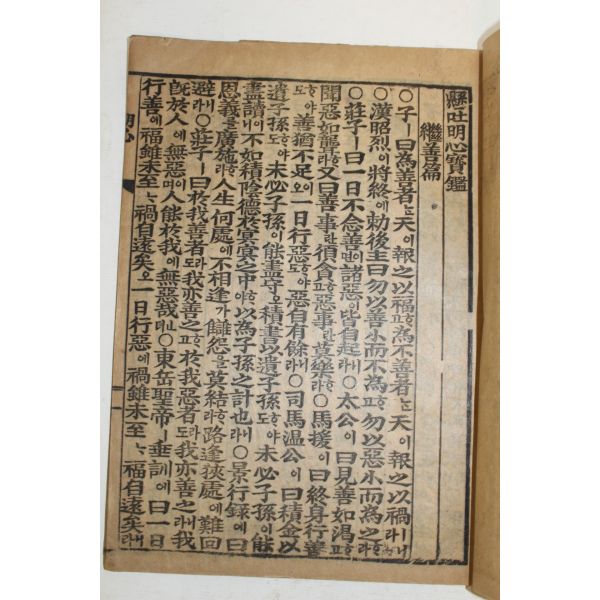 懸吐明心寶鑑
繼善篇
○子ㅣ曰爲善者는天이報之以福고爲不善者는天이報之以禍ㅣ니라
○漢昭烈이將終에勅後主曰勿以善小而不爲고勿以惡小而爲之라
○莊子ㅣ曰一日不念善이면諸惡이皆自起라○太公이曰見善如渴고
聞惡如聾라又曰善事란須貪고惡事란莫樂라○馬援이曰終身行善
도善猶不足오一日行惡도惡自有餘니라○司馬溫公이曰積金以
遺子孫도未必子孫이能盡守오積書以遺子孫도未必子孫이能
盡讀이니不如積陰德於冥冥之中야以爲子孫之計也ㅣ니라○景行錄에曰
恩義를廣施라人生何處에不相逢가讎怨을莫結라路逢狹處에難回
避니라○莊子ㅣ曰於我善者도我亦善之고於我惡者도我亦善之니라我
旣於人에無惡이면人能於我에無惡哉ㄴ뎌○東岳聖帝ㅣ垂訓에曰一日
行善에福雖未至나禍自遠矣오一日行惡에禍雖未至나福自遠矣라